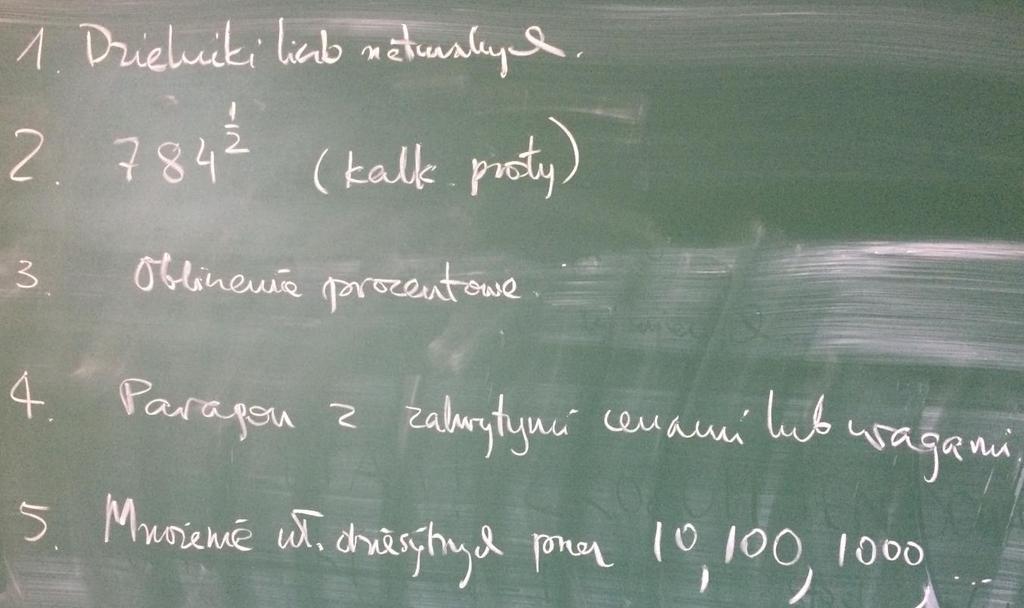 1. Dzielniki liczb naturalnych.
2. 784^½ (kalk. prosty)
3. Obliczenia procentowe.
4. Paragon z zakrytymi cenami lub wagami.
5. Mnożenie uł. dziesiętnych przez 10, 100, 1000, ...